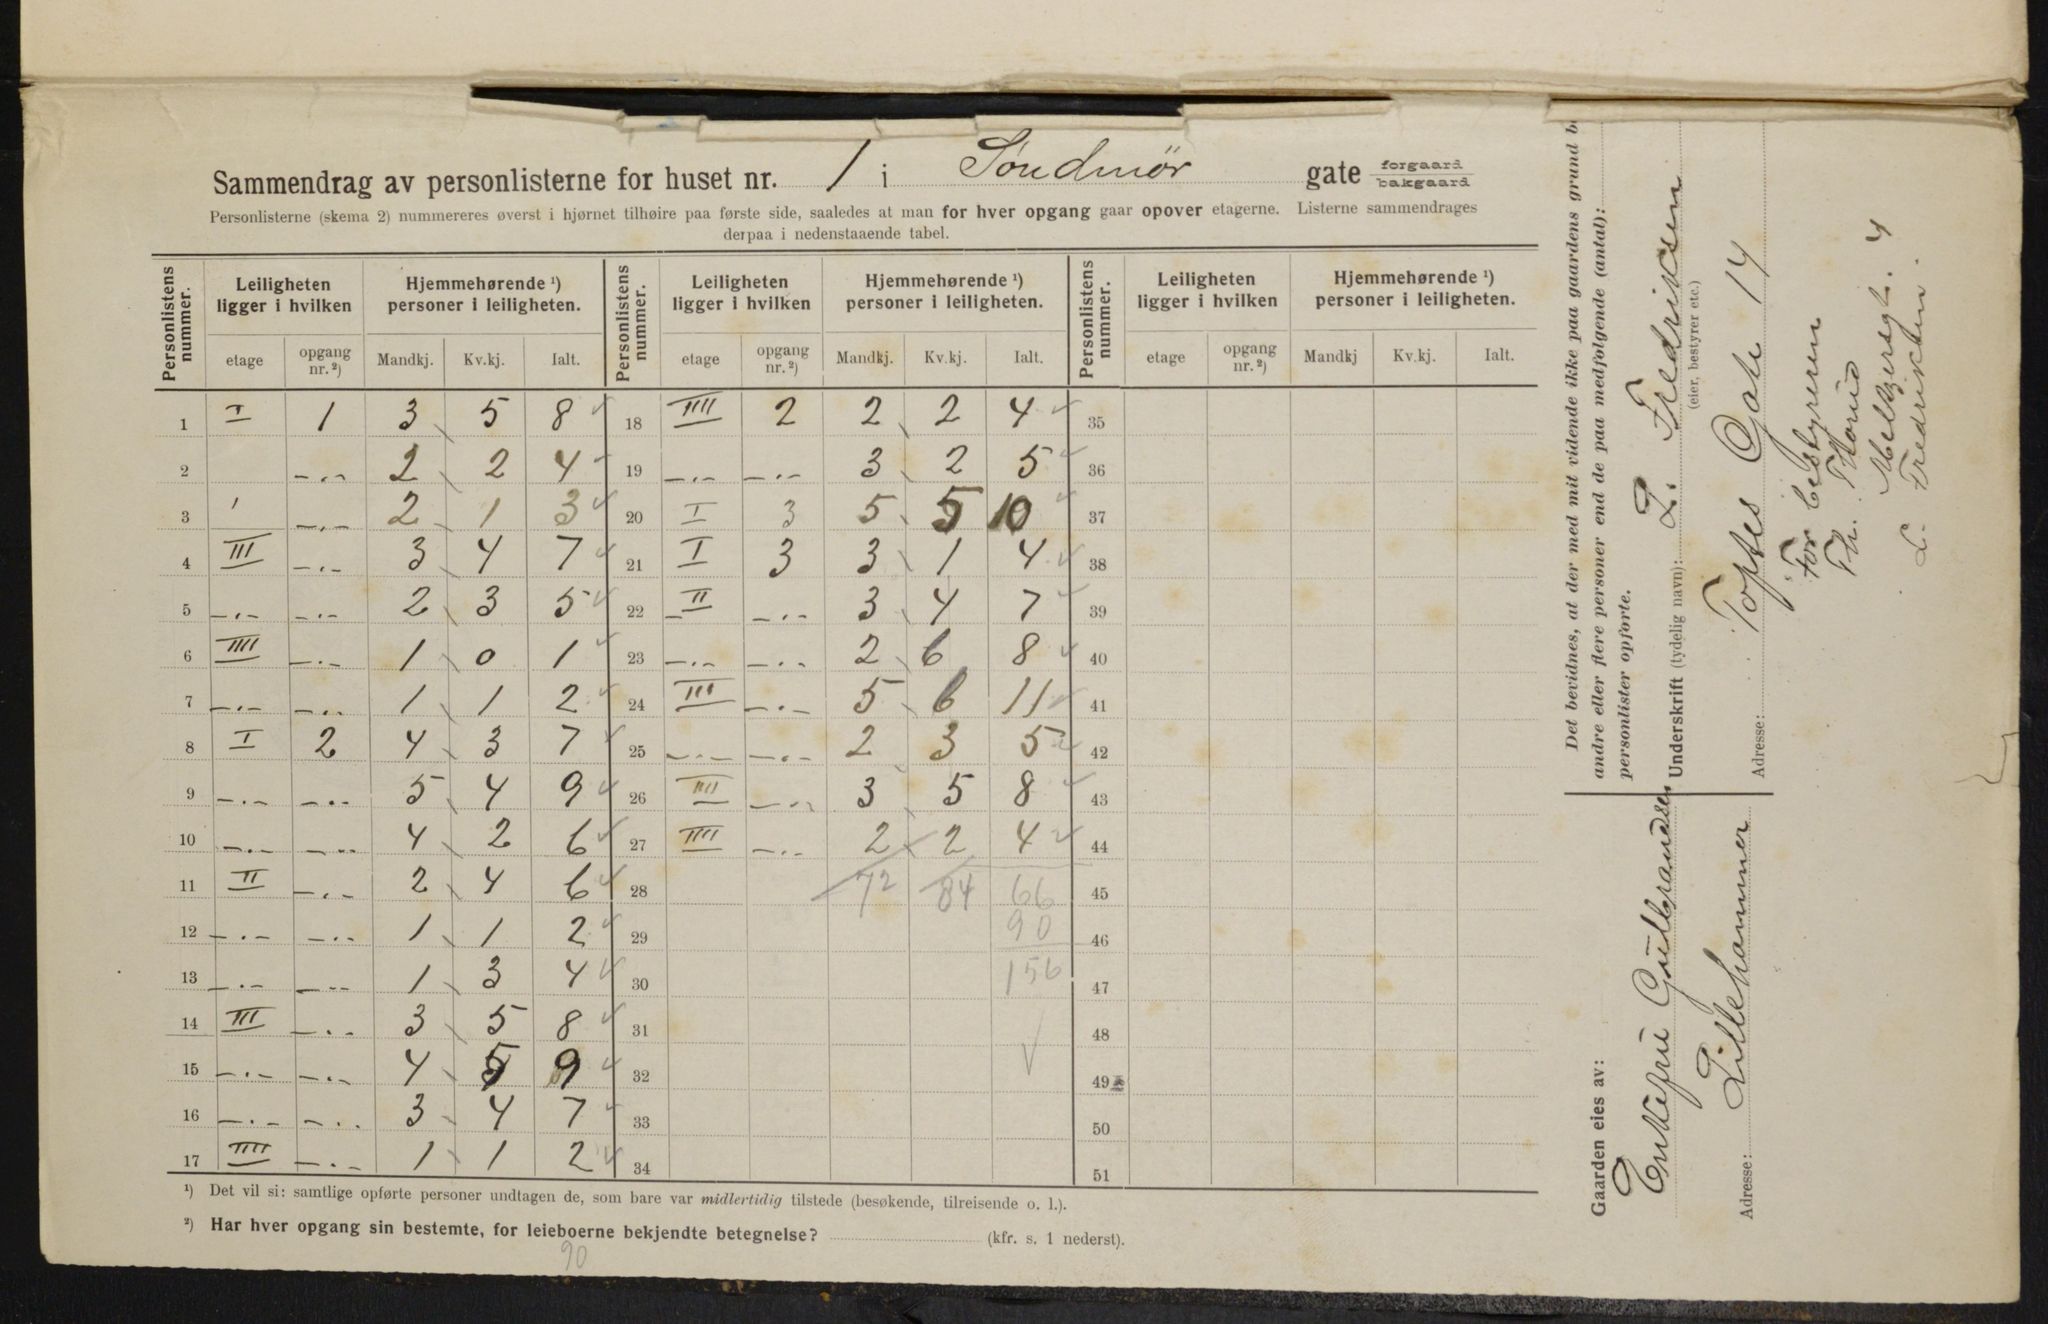 Sammendrag av personlisterne for huset nr. 1 i Søndmör gate forgaard bakgaard
Personlisterne (skema 2) nummereres øverst i hjørnet tilhøire paa første side, saaledes at man for hver opgang gaar opover etagerne. Listerne sammendrages
derpaa i nedenstaaende tabel.
Personlistens nummer. Leiligheten ligger i hvilken Hjemmehørende ¹) personer i leiligheten. Personlistens nummer. Leiligheten ligger i hvilken Hjemmehørende ¹) personer i leiligheten. Personlistens nummer. Leiligheten ligger i hvilken Hjemmehørende ¹) personer i leiligheten.
etage opgang nr. ²) Mandkj. Kv.kj. Ialt. etage opgang nr. ²) Mandkj. Kv.kj. Ialt. etage opgang nr. ²) Mandkj Kv.kj. Ialt.
1 I 1 3 5 8 18 IIII 2 2 2 4 35
2 -.- 2 2 4 19 -.- -.- 3 2 5 36
3 ' -.- 2 1 3 20 I 3 5 5 10 37
4 III -.- 3 4 7 21 I 3 3 1 4 38
5 -.- -.- 2 3 5 22 II -.- 3 4 7 39
6 IIII -.- 1 0 1 23 -.- -.- 2 6 8 40
7 -.- -.- 1 1 2 24 III -.- 5 6 11 41
8 I 2 4 3 7 25 -.- -.- 2 3 5 42
9 -.- -.- 5 4 9 26 IIII -.- 3 5 8 43
10 -.- -.- 4 2 6 27 IIII -.- 2 2 4 44
11 II -.- 2 4 6 28 72 84 66 45
12 -.- -.- 1 1 2 29 90 46
13 -.- -.- 1 3 4 30 156 47
14 III -.- 3 5 8 31 48
15 -.- -.- 4 5 9 32 49
16 -.- -.- 3 4 7 33 50
17 IIII -.- 1 1 2 34 51
¹) Det vil si: samtlige opførte personer undtagen de, som bare var midlertidig tilstede (besøkende, tilreisende o. l.).
²) Har hver opgang sin bestemte, for leieboerne bekjendte betegnelse? (kfr. s. 1 nederst).
90
Det bevidnes, at der med mit vidende ikke paa gaardens grund b
andre eller flere personer end de paa medfølgende (antal):
personlister opførte.
Underskrift (tydelig navn): L. Fredriksen
(eier, bestyrer etc.)
Adresse: Toftes Gate 14
For bestyreren
Th. Thorud
Melkjersgt. 4
L. Fredriksen.
Gaarden eies av:
Enkefru Gulbrandsen
Adresse: Lillehammer